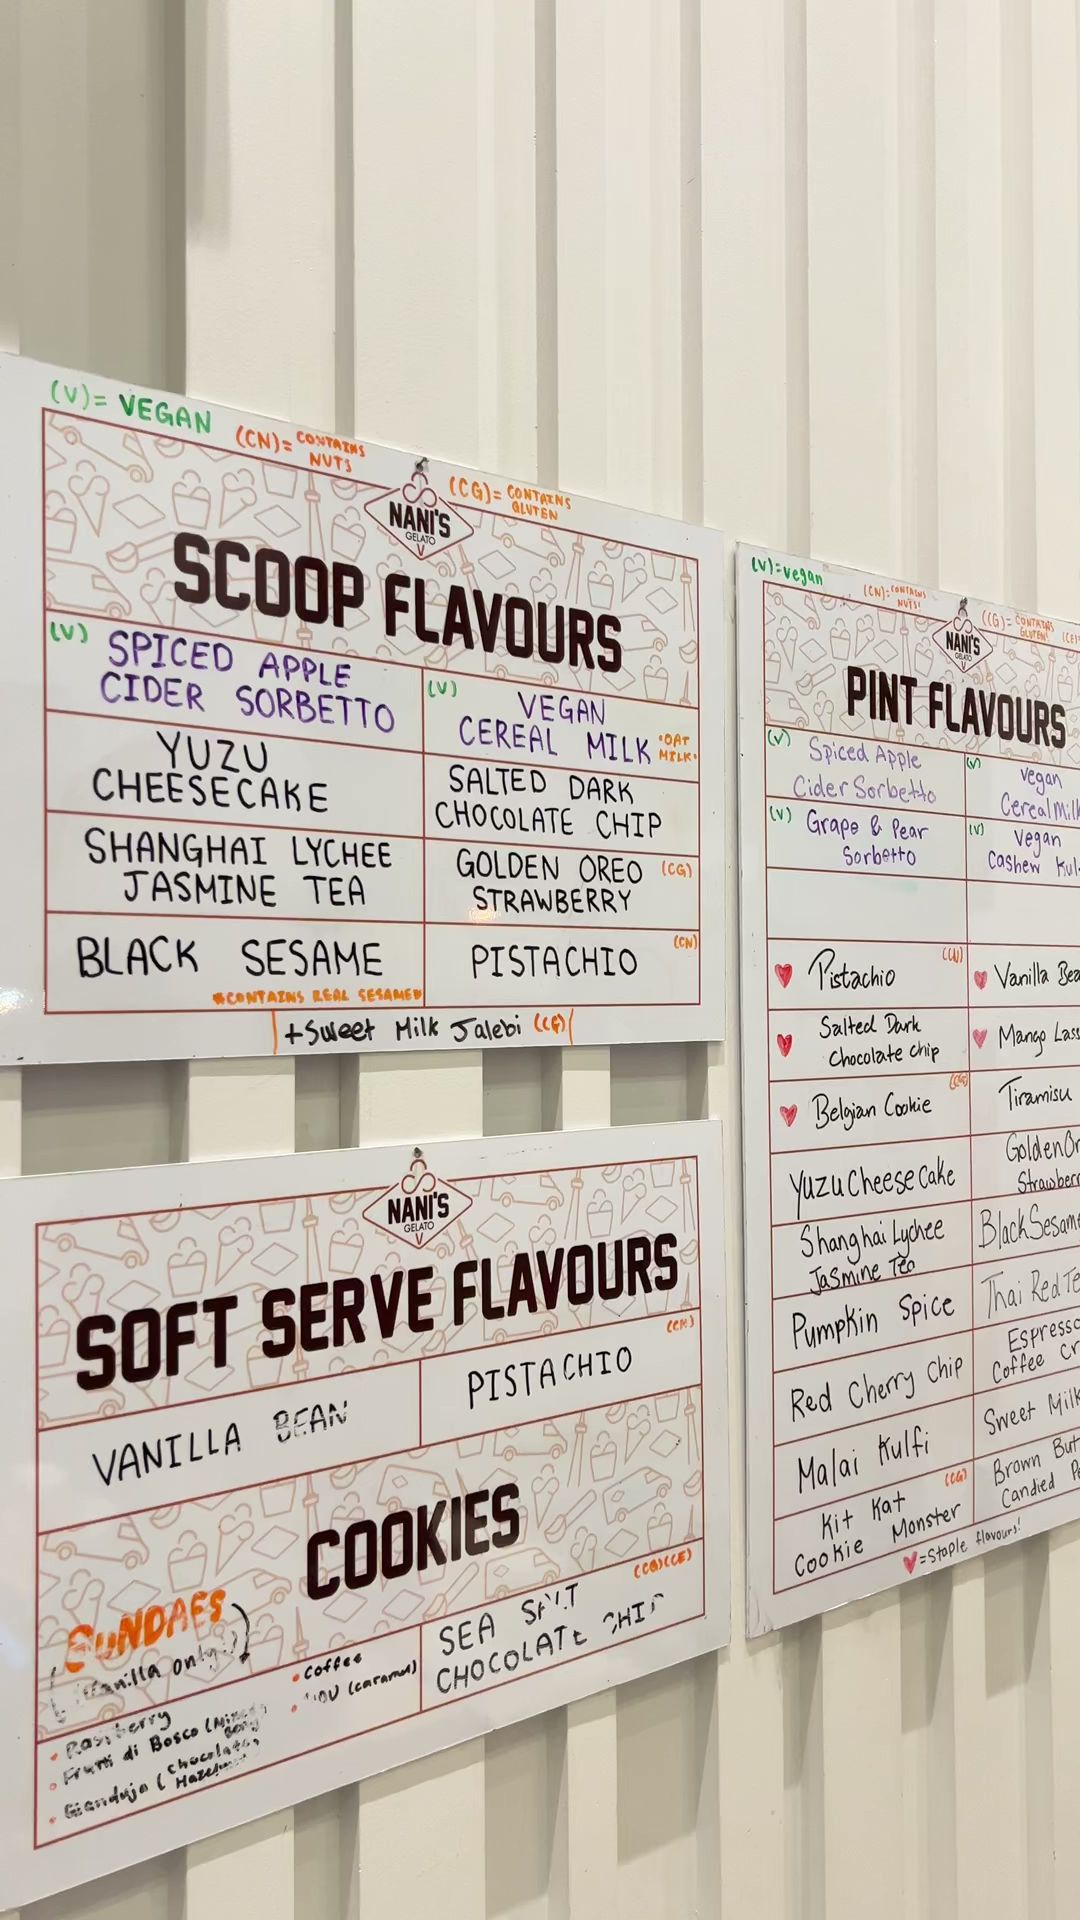 (V)= VEGAN
(CN)= CONTAINS
NUTS
(CG)= CONTAINS
GLUTEN
NANI'S
GELATO
SCOOP FLAVOURS
(V) SPICED APPLE
CIDER SORBETTO
(V) VEGAN
CEREAL MILK
•OAT
MILK•
YUZU
CHEESECAKE
SALTED DARK
CHOCOLATE CHIP
SHANGHAI LYCHEE
JASMINE TEA
GOLDEN OREO (CG)
STRAWBERRY
BLACK SESAME
*CONTAINS REAL SESAME*
(CN)
PISTACHIO
+Sweet Milk Jalebi (CG)
NANI'S
GELATO
SOFT SERVE FLAVOURS
VANILLA BEAN
(CN)
PISTACHIO
COOKIES
SUNDAES
(Vanilla only)
• Raspberry
• Frutti di Bosco (Mixed
• Gianduja (Chocolate
• Coffee
(caramel)
(CG)(CE)
SEA SALT
CHOCOLATE CHIP
(V)=vegan
(CN)=CONTAINS
NUTS!
(CG)= CONTAINS
GLUTEN!
NANI'S
GELATO
PINT FLAVOURS
(V) Spiced Apple
Cider Sorbetto
(V) Vegan
Cereal Milk
(V) Grape & Pear
Sorbetto
(V) Vegan
Cashew Kul
(CN)
Pistachio
Vanilla Bea
Salted Dark
Chocolate chip
Mango Lass
(CG)
Belgian Cookie
Tiramisu
Yuzu Cheesecake
Golden Or
Strawberr
Shanghai Lychee
Jasmine Tea
Black Sesame
Pumpkin Spice
Thai Red Te
Red Cherry Chip
Espresso
Coffee Cr
Malai Kulfi
Sweet Milk
(CG)
Kit Kat
Cookie Monster
Brown But
Candied P
=staple flavours!